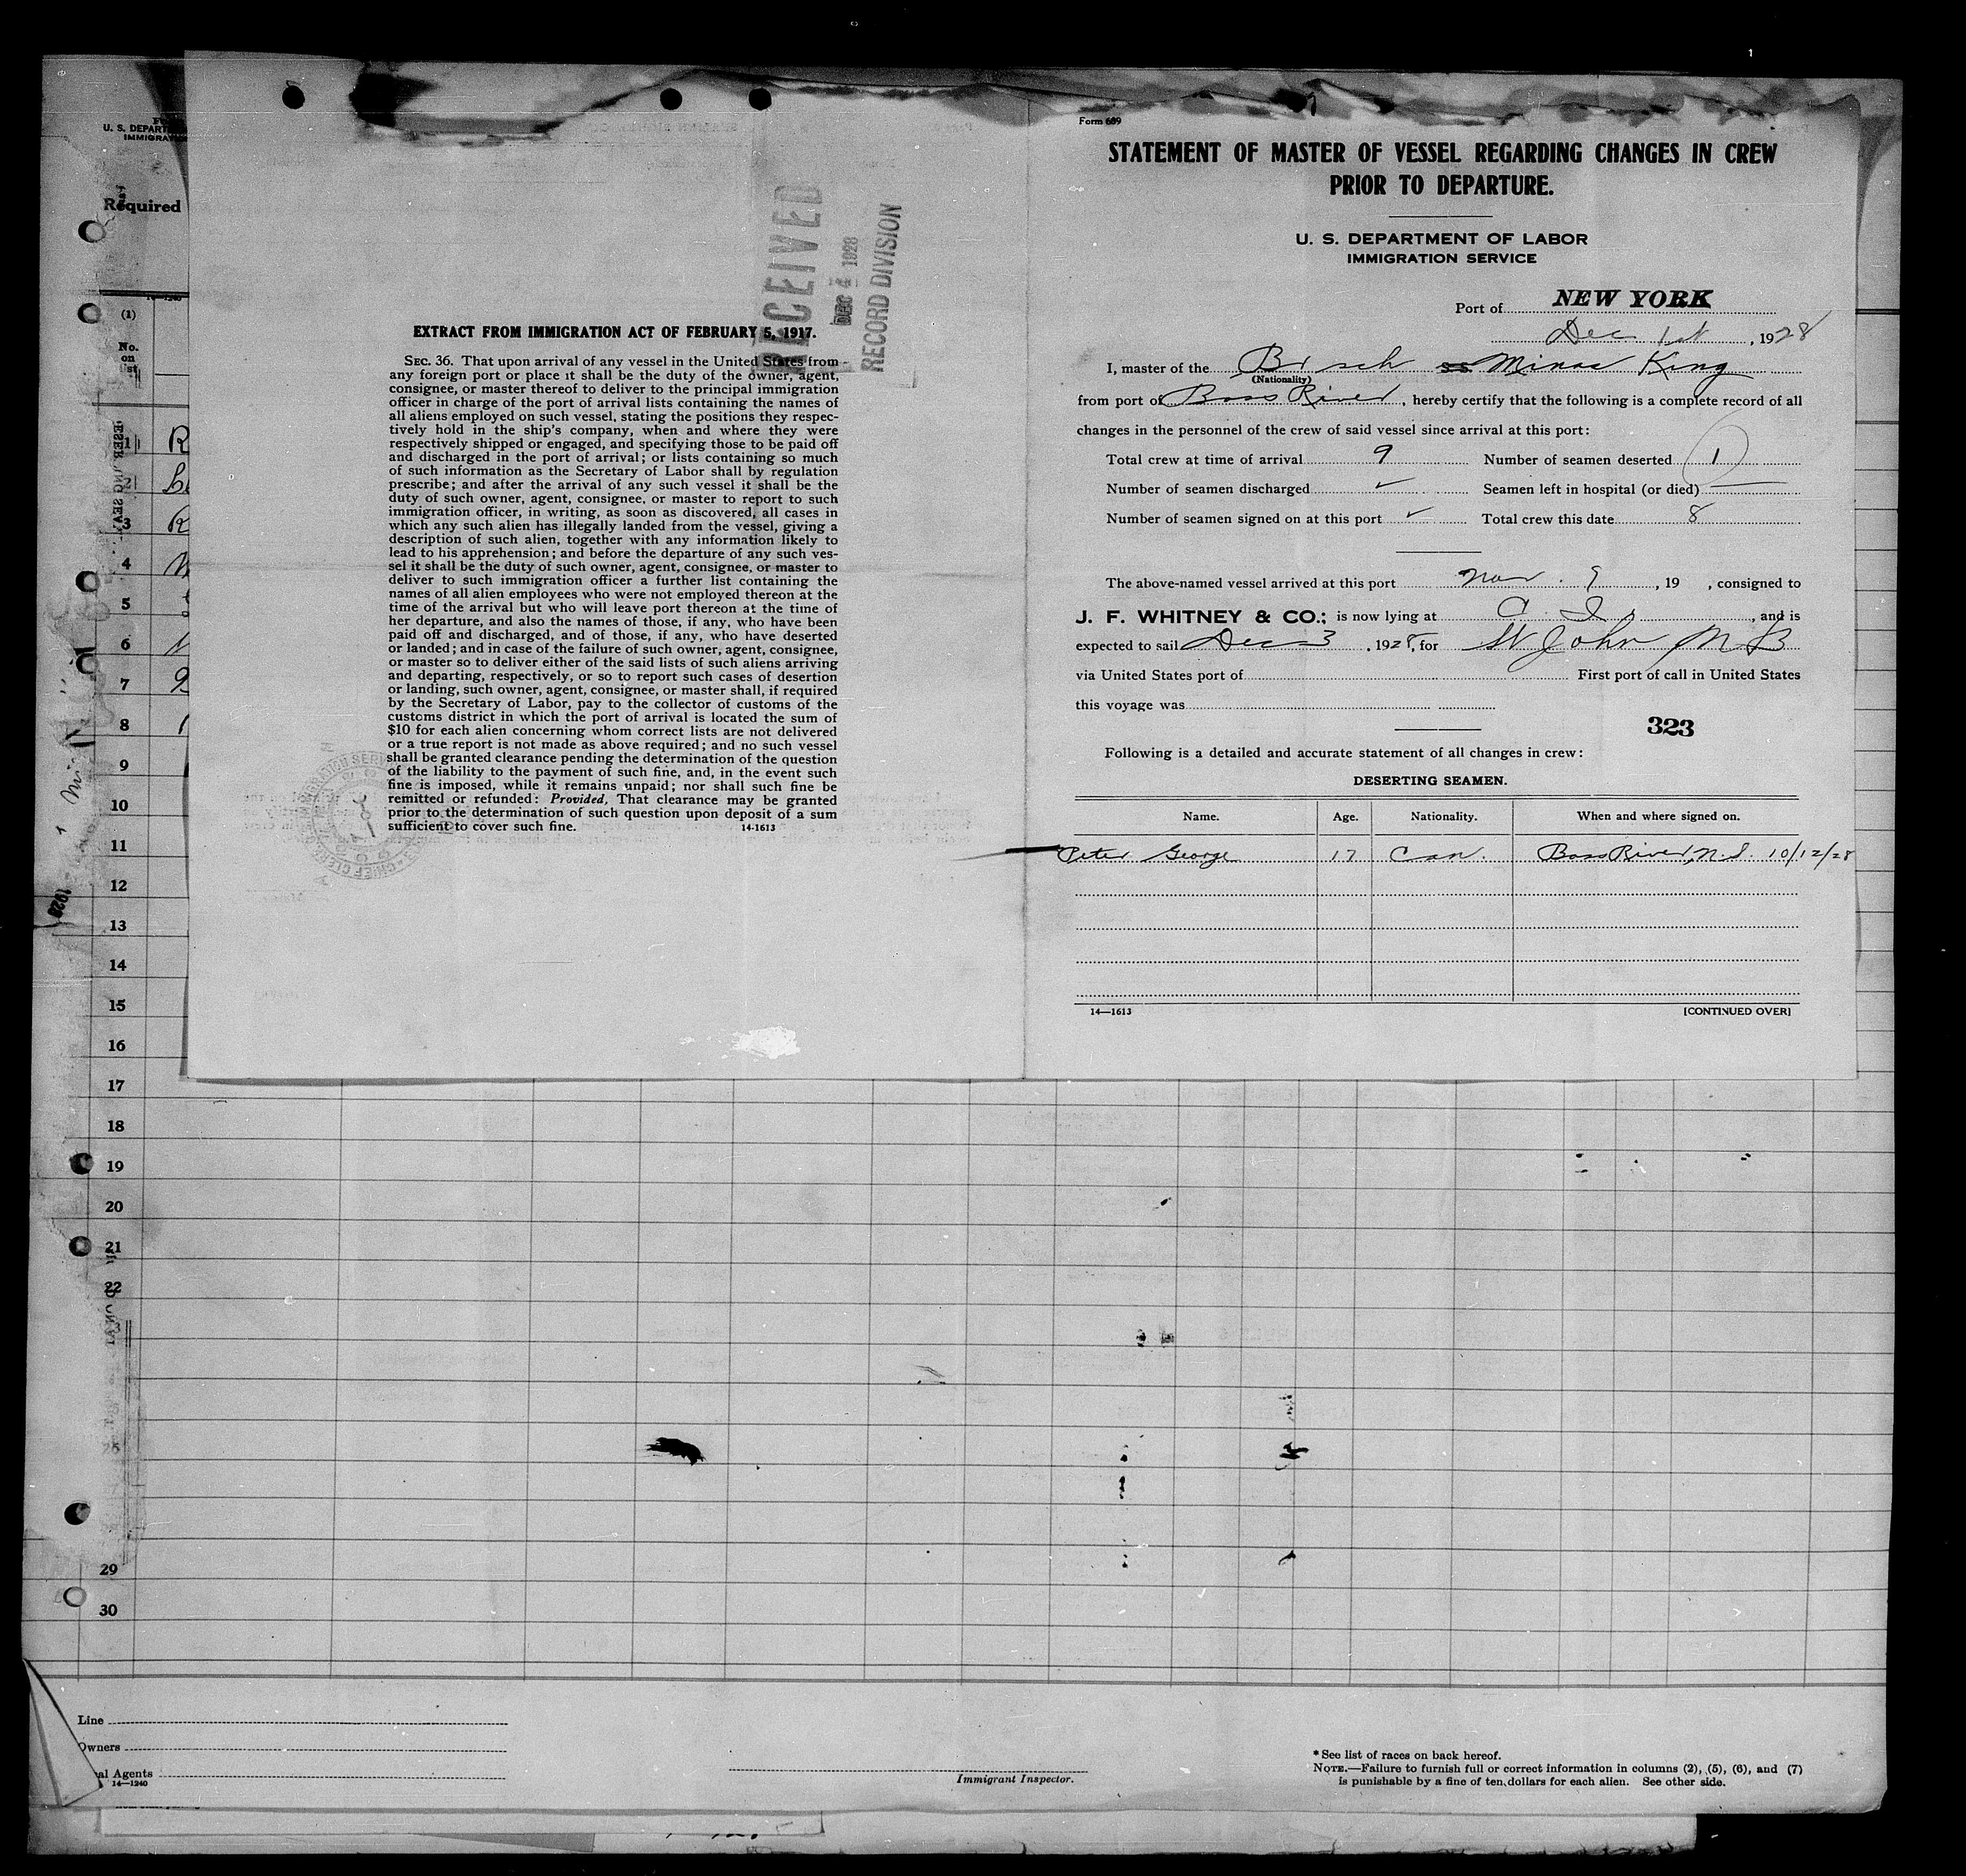 U. S. DEPART
IMMIGRA
Required
(1)
No.
on
list
1
2
3
4
5
6
7
8
9
10
11
12
13
14
15
16
17
18
19
20
21
22
29
30
RECEIVED
DEC 4 1928
RECORD DIVISION
EXTRACT FROM IMMIGRATION ACT OF FEBRUARY 5, 1917.
SEC. 36. That upon arrival of any vessel in the United States from
any foreign port or place it shall be the duty of the owner, agent,
consignee, or master thereof to deliver to the principal immigration
officer in charge of the port of arrival lists containing the names of
all aliens employed on such vessel, stating the positions they respec-
tively hold in the ship's company, when and where they were
respectively shipped or engaged, and specifying those to be paid off
and discharged in the port of arrival; or lists containing so much
of such information as the Secretary of Labor shall by regulation
prescribe; and after the arrival of any such vessel it shall be the
duty of such owner, agent, consignee, or master to report to such
immigration officer, in writing, as soon as discovered, all cases in
which any such alien has illegally landed from the vessel, giving a
description of such alien, together with any information likely to
lead to his apprehension; and before the departure of any such ves-
sel it shall be the duty of such owner, agent, consignee, or master to
deliver to such immigration officer a further list containing the
names of all alien employees who were not employed thereon at the
time of the arrival but who will leave port thereon at the time of
her departure, and also the names of those, if any, who have been
paid off and discharged, and of those, if any, who have deserted
or landed; and in case of the failure of such owner, agent, consignee,
or master so to deliver either of the said lists of such aliens arriving
and departing, respectively, or so to report such cases of desertion
or landing, such owner, agent, consignee, or master shall, if required
by the Secretary of Labor, pay to the collector of customs of the
customs district in which the port of arrival is located the sum of
$10 for each alien concerning whom correct lists are not delivered
or a true report is not made as above required; and no such vessel
shall be granted clearance pending the determination of the question
of the liability to the payment of such fine, and, in the event such
fine is imposed, while it remains unpaid; nor shall such fine be
remitted or refunded: Provided, That clearance may be granted
prior to the determination of such question upon deposit of a sum
sufficient to cover such fine. 14-1613
Form 689
STATEMENT OF MASTER OF VESSEL REGARDING CHANGES IN CREW
PRIOR TO DEPARTURE.
U. S. DEPARTMENT OF LABOR
IMMIGRATION SERVICE
Port of NEW YORK
Dec 1st, 1928
I, master of the Br sch Minas King
(Nationality)
from port of Bass River, hereby certify that the following is a complete record of all
changes in the personnel of the crew of said vessel since arrival at this port:
Total crew at time of arrival 9 Number of seamen deserted 1
Number of seamen discharged ✓ Seamen left in hospital (or died)
Number of seamen signed on at this port ✓ Total crew this date 8
The above-named vessel arrived at this port Nov. 9, 19 , consigned to
J. F. WHITNEY & CO.; is now lying at C. I., and is
expected to sail Dec 3, 1928, for St John N B
via United States port of First port of call in United States
this voyage was
323
Following is a detailed and accurate statement of all changes in crew:
DESERTING SEAMEN.
Name. Age. Nationality. When and where signed on.
Peter George 17 Can. Bass River, N.S. 10/12/28
14—1613 [CONTINUED OVER]
Line
Owners
al Agents
14—1240
Immigrant Inspector.
* See list of races on back hereof.
NOTE.—Failure to furnish full or correct information in columns (2), (5), (6), and (7)
is punishable by a fine of ten dollars for each alien. See other side.